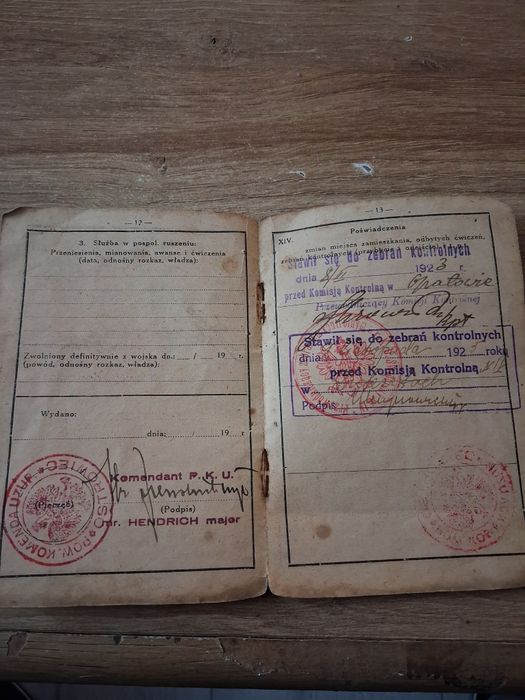 — 12 —
3. Służba w pospol. ruszeniu:
Przeniesienia, mianowania, awanse i ćwiczenia
(data, odnośny rozkaz, władza):
Zwolniony definitywnie z wojska dn.: / 19 r.
(powód, odnośny rozkaz, władza):
Wydano:
dnia: / 19 r
Komendant P. K. U.
(Pieczęć)
(Podpis)
mr. HENDRICH major
POW. KOMENDA UZUP. OSTROWIEC
— 13 —
XIV.
Poświadczenia
zmian miejsca zamieszkania, odbytych ćwiczeń,
zebrań kontrolnych
Stawił się do zebrań kontrolnych
dnia 1923 r.
przed Komisją Kontrolną w Opatowie
Przewodniczący Komisji Kontrolnej
Stawił się do zebrań kontrolnych
dnia 192 roku
przed Komisją Kontrolną
w
Podpis